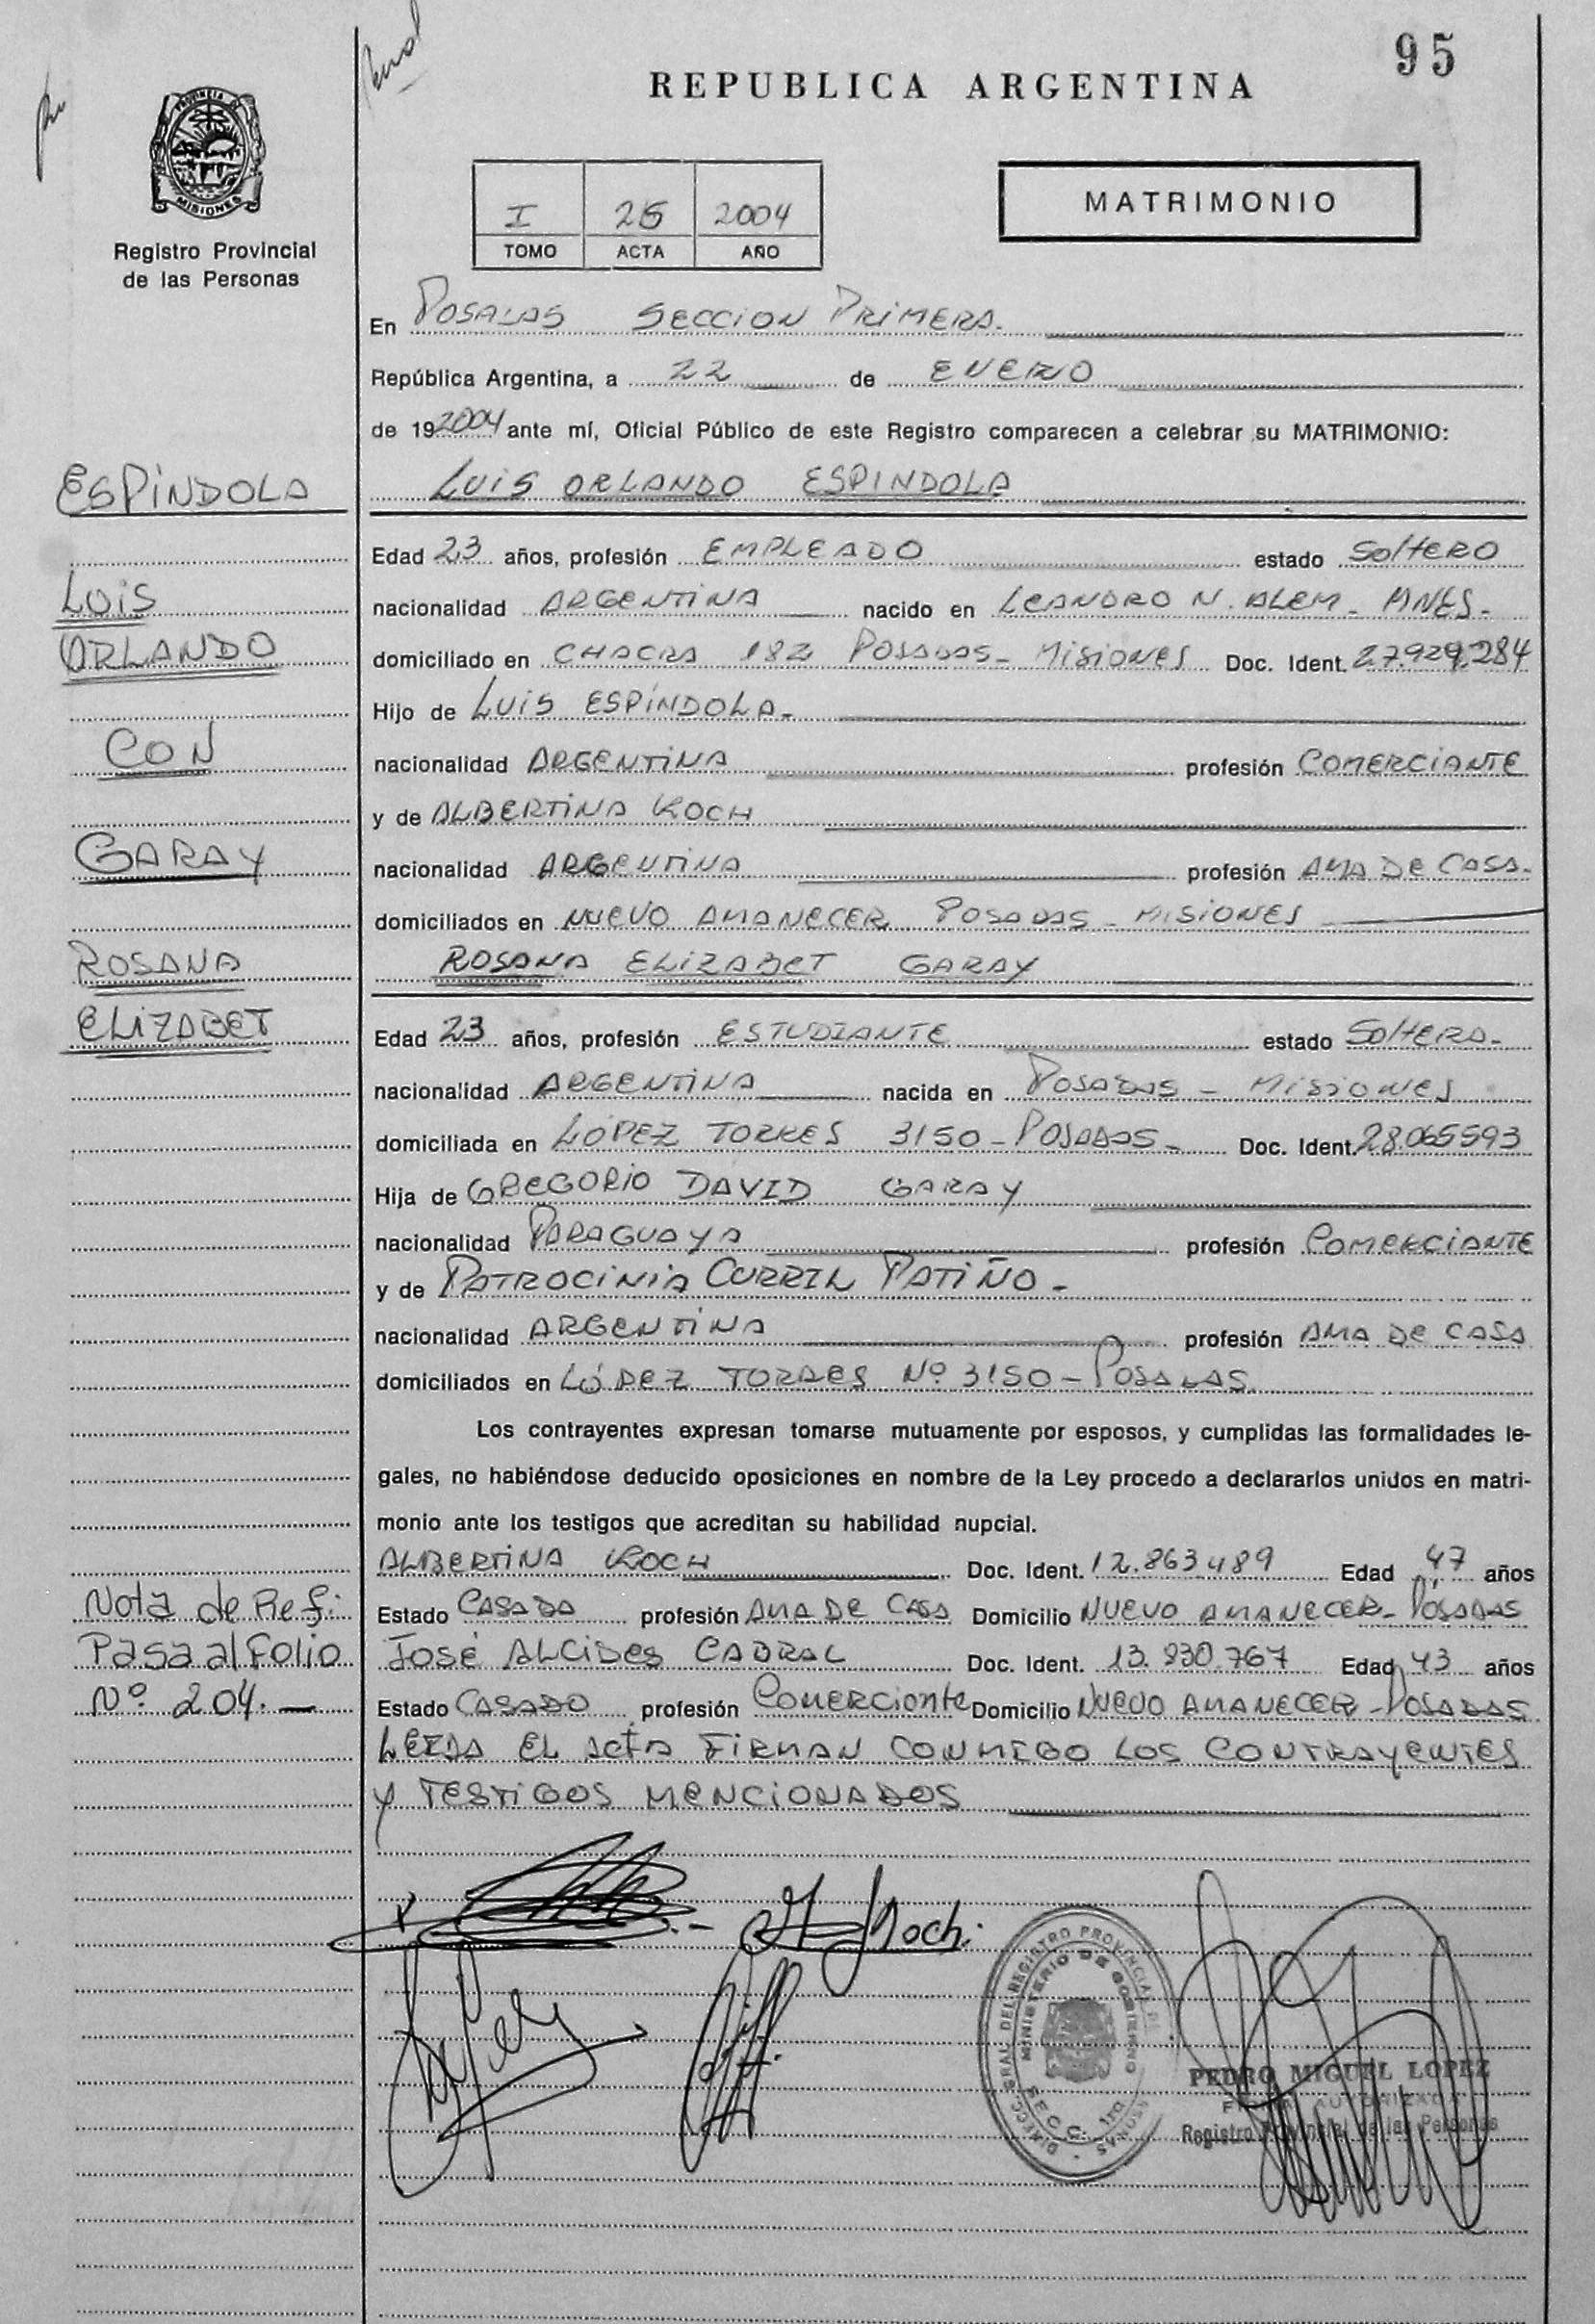 95
REPUBLICA ARGENTINA
PROVINCIA DE
MISIONES
Registro Provincial
de las Personas
I 25 2004
TOMO ACTA AÑO
MATRIMONIO
En POSADAS SECCION PRIMERA.
República Argentina, a 22 de ENERO
de 192004 ante mí, Oficial Público de este Registro comparecen a celebrar su MATRIMONIO:
ESPÍNDOLA
LUIS ORLANDO ESPINDOLA
Edad 23 años, profesión EMPLEADO estado SOLTERO
LUIS
nacionalidad ARGENTINA nacido en LEANDRO N. ALEM - MNES-
ORLANDO
domiciliado en CHACRA 182 POSADAS - MISIONES Doc. Ident. 27.929.284
Hijo de LUIS ESPÍNDOLA-
CON
nacionalidad ARGENTINA profesión COMERCIANTE
y de ALBERTINA KOCH
GARAY
nacionalidad ARGENTINA profesión AMA DE CASA-
domiciliados en NUEVO AMANECER POSADAS - MISIONES
ROSANA
ROSANA ELIZABET GARAY
ELIZABET
Edad 23 años, profesión ESTUDIANTE estado SOLTERA-
nacionalidad ARGENTINA nacida en POSADAS - MISIONES
domiciliada en LÓPEZ TORRES 3150 - POSADAS - Doc. Ident. 28.065593
Hija de GREGORIO DAVID GARAY
nacionalidad PARAGUAYA profesión COMERCIANTE
y de PATROCINIA PATIÑO -
nacionalidad ARGENTINA profesión AMA DE CASA
domiciliados en LÓPEZ TORRES Nº 3150 - POSADAS
Los contrayentes expresan tomarse mutuamente por esposos, y cumplidas las formalidades le-
gales, no habiéndose deducido oposiciones en nombre de la Ley procedo a declararlos unidos en matri-
monio ante los testigos que acreditan su habilidad nupcial.
ALBERTINA KOCH Doc. Ident. 12.863.489 Edad 47 años
Nota de Ref:
Estado CASADA profesión AMA DE CASA Domicilio NUEVO AMANECER - POSADAS
Pasa al Folio
JOSÉ ALCIDES CABRAL Doc. Ident. 13.830.767 Edad 43 años
Nº 204. —
Estado CASADO profesión COMERCIANTE Domicilio NUEVO AMANECER - POSADAS
LEIDA EL ACTA FIRMAN CONMIGO LOS CONTRAYENTES
Y TESTIGOS MENCIONADOS
Koch
DIRECC. GRAL. DEL REGISTRO PROVINCIAL DE
MINISTERIO DE GOBIERNO
SECC. 1ra
PEDRO MIGUEL LOPEZ
FIRMA AUTORIZADA
Registro Provincial de las Personas